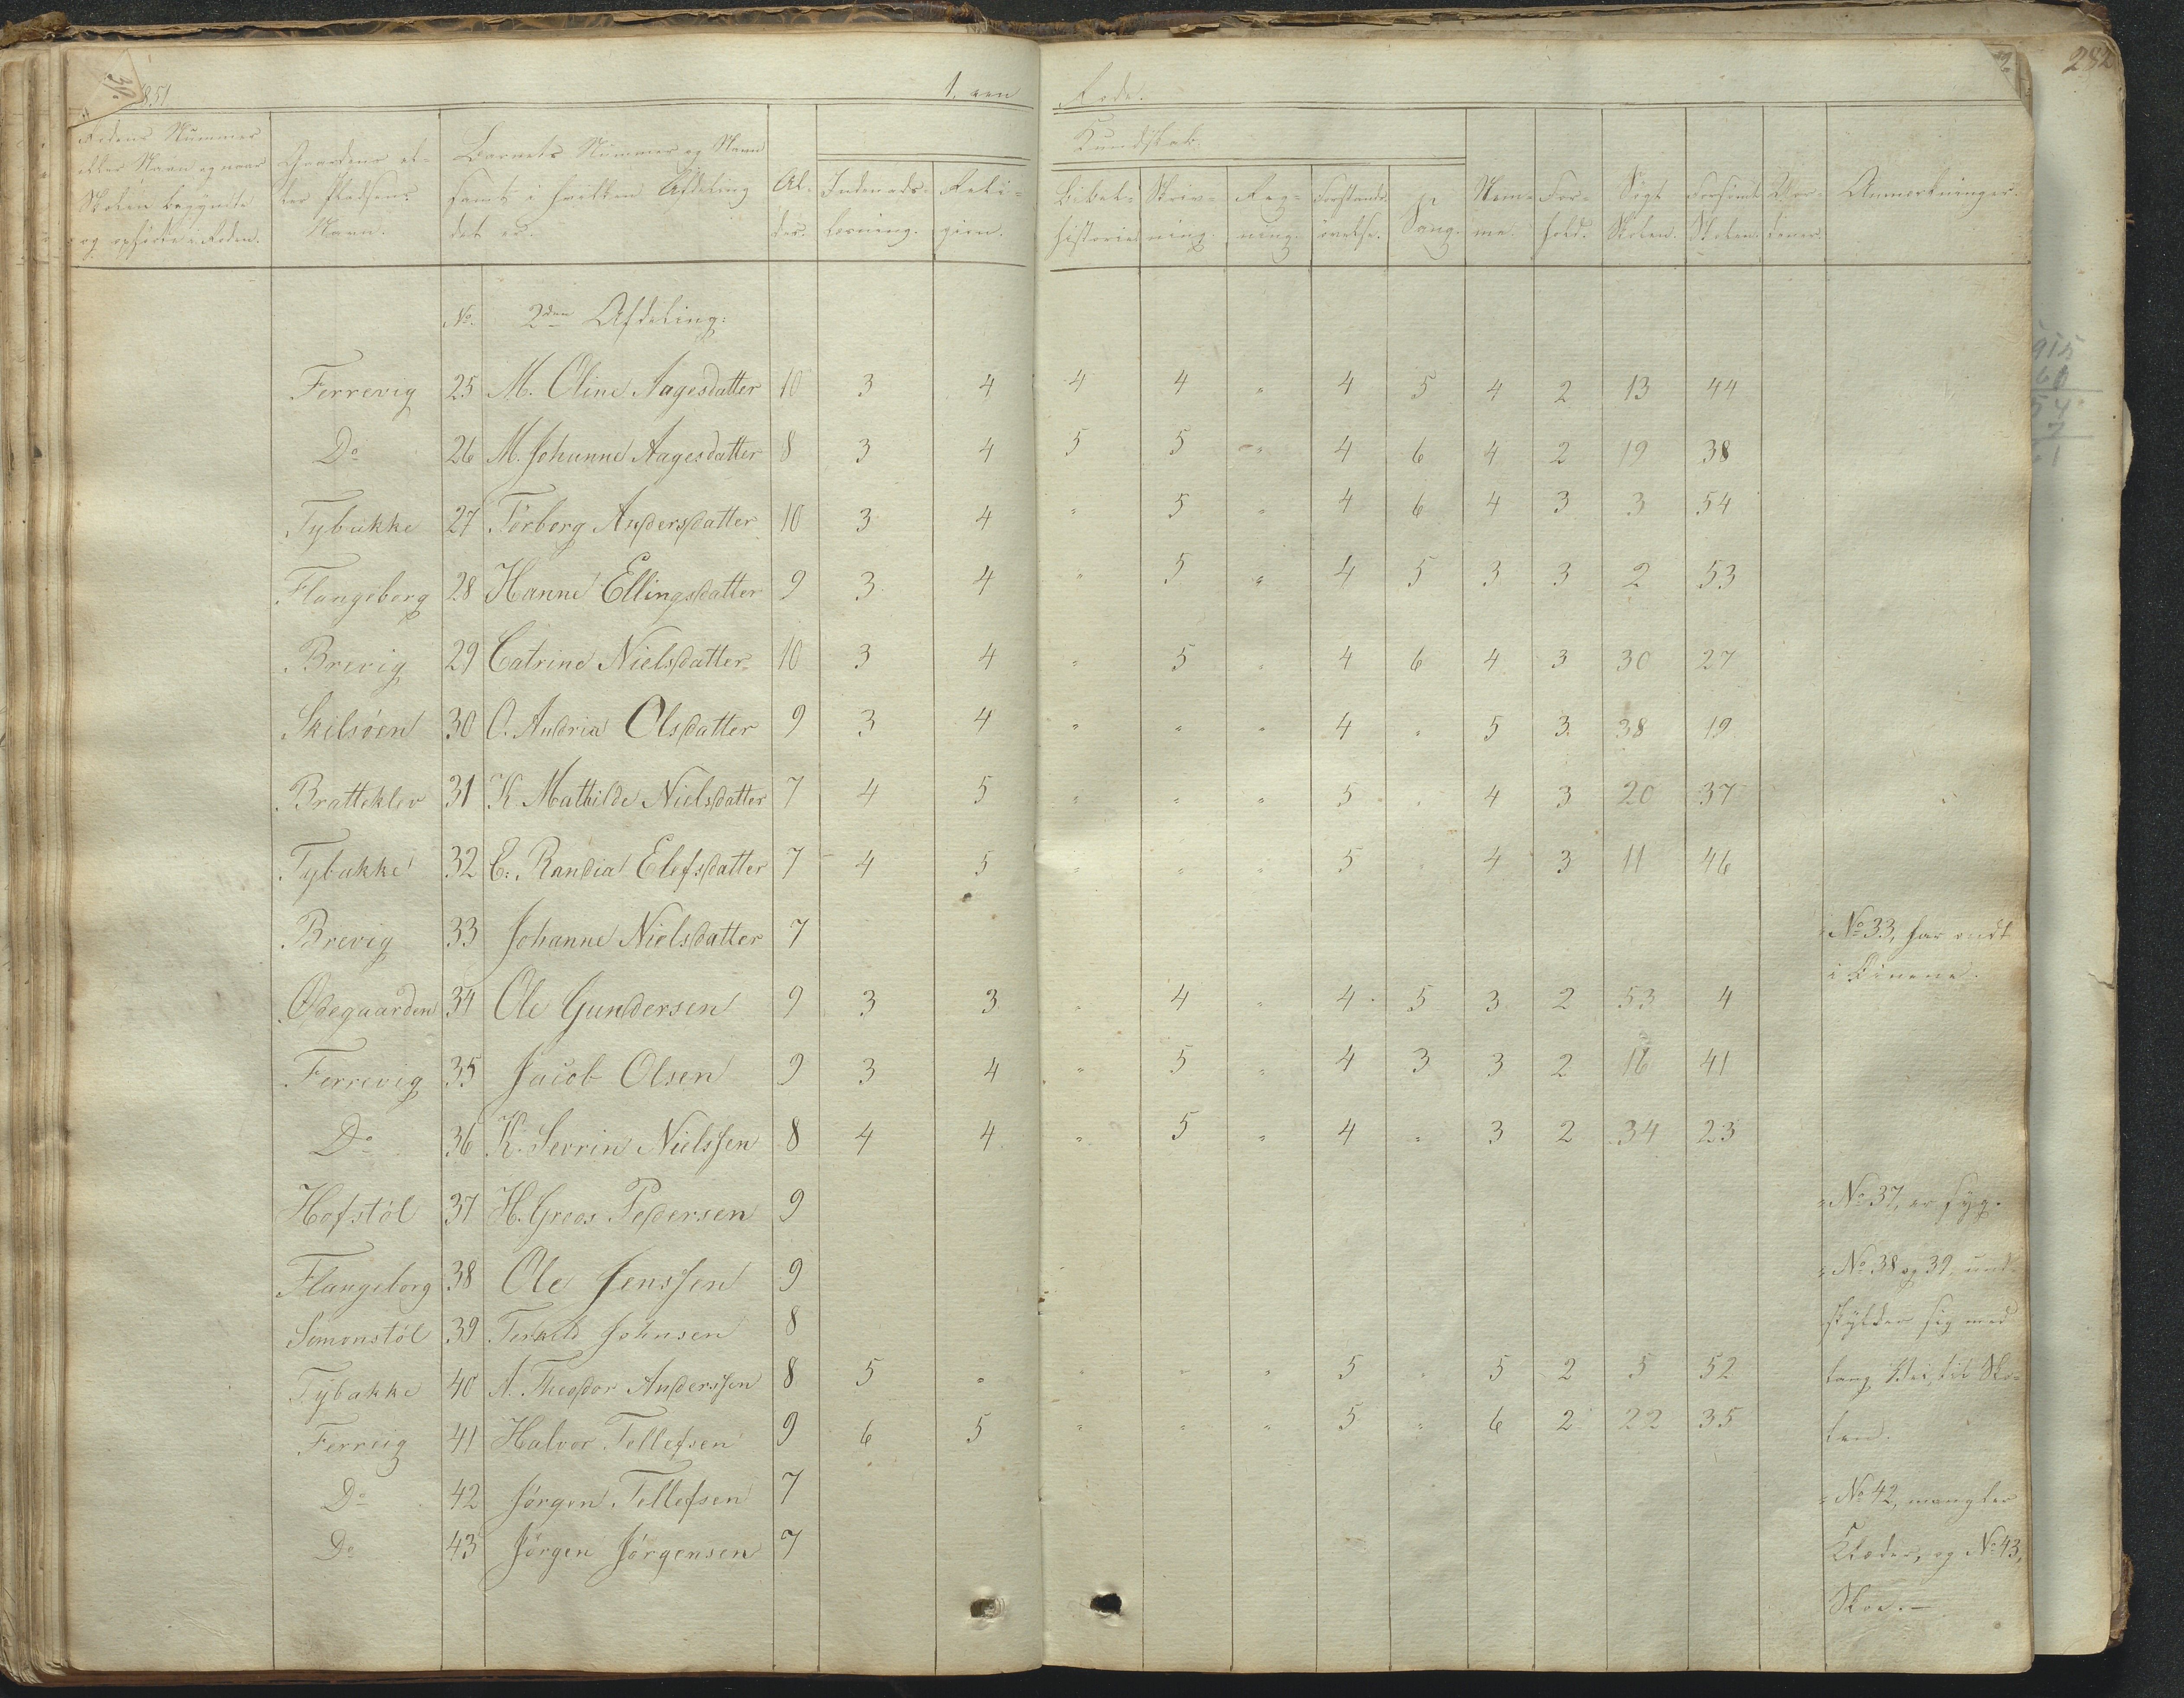 1851
1. een Rode.
282
Rodens Nummer eller Navn og naar Skolen begyndte og ophørte i Roden.
Gaardens eller Pladsens Navn.
Barnets Nummer og Navn samt i hvilken Afdeling det er.
Alder.
Kundskab.
Indenadslæsning.
Religion.
Bibelhistorie
Skrivning.
Regning.
Forstandsøvelse.
Sang.
Nemme.
Forhold.
Søgt Skolen.
Forsømt Skolen.
Anmærkninger.
No. 2den Afdeling:
Ferrevig 25 M. Oline Aagesdatter 10 3 4 4 4 " 4 5 4 2 13 44
Do 26 M. Johanne Aagesdatter 8 3 4 5 5 " 4 6 4 2 19 38
Tybakke 27 Torborg Andersdatter 10 3 4 " 5 " 4 6 4 3 3 54
Flangeborg 28 Hanne Ellingsdatter 9 3 4 " 5 " 4 5 3 3 2 53
Brevig 29 Catrine Nielsdatter 10 3 4 " 5 " 4 6 4 3 30 27
Skilsøen 30 O. Andria Olsdatter 9 3 4 " " " 4 " 5 3 38 19
Bratteklev 31 K Mathilde Nielsdatter 7 4 5 " " " 5 " 4 3 20 37
Tybakke 32 C. Randia Elefsdatter 7 4 5 " " " 5 " 4 3 11 46
Brevig 33 Johanne Nielsdatter 7 No 33, har ondt
i Øinene.
Ødegaarden 34 Ole Gundersen 9 3 3 " 4 " 4 5 3 2 53 4
Ferrevig 35 Jacob Olsen 9 3 4 " 5 " 4 3 3 2 16 41
Do 36 K. Serrin Nielssen 8 4 4 " 5 " 4 " 3 2 34 23
Hofstøl 37 H. Groos Pedersen 9 No 37, er syg.
Flangeborg 38 Ole Jenssen 9 No 38 og 39, und-
Simonstøl 39 Terkild Johnsen 8 skylder sig med
Tybakke 40 A. Theodor Anderssen 8 5 " " " " 5 " 5 2 5 52 lang Vei til Sko-
Ferrevig 41 Halvor Tellefsen 9 6 5 " " " 5 " 6 2 22 35 len.
Do 42 Jørgen Tellefsen 7 No 42, mangler
Do 43 Jørgen Jørgensen 7 Klæder, og No 43,
Skoe.